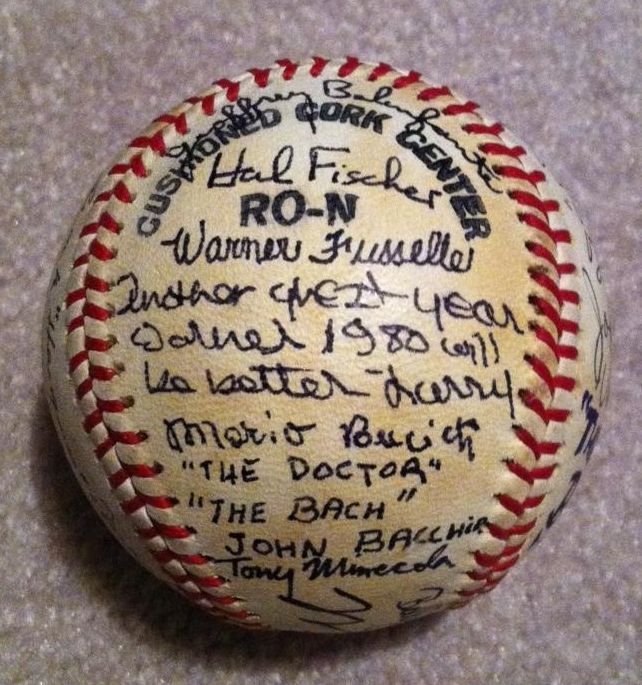 CUSHIONED CORK CENTER
Hal Fischer
RO-N
Warner Fusselle
another great year
Warner 1980 will
be better Larry
Mario
"THE DOCTOR"
"THE BACH"
JOHN
Tony